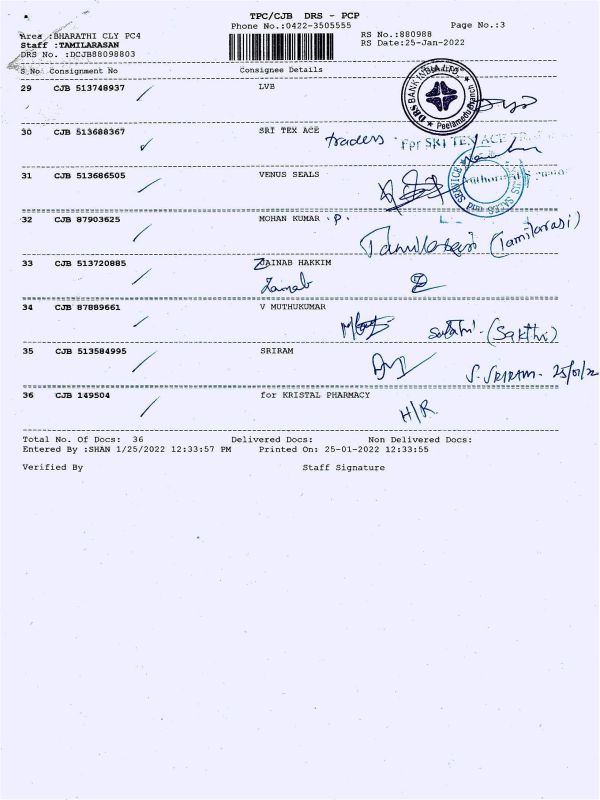 TPC/CJB DRS - PCP
Phone No.:0422-3505555 Page No.:3
Area :BHARATHI CLY PC4 RS No.:880988
Staff :TAMILARASAN RS Date:25-Jan-2022
DRS No. :DCJB88098803
S No Consignment No Consignee Details
29 CJB 513748937 LVB
DBS BANK INDIA LTD
Peelamedu Branch
30 CJB 513688367 SRI TEX ACE traders
For SRI TEX ACE
31 CJB 513686505 VENUS SEALS
SALES SERVICE
32 CJB 87903625 MOHAN KUMAR . P.
Tamilarasi (Tamilarasi)
33 CJB 513720885 ZAINAB HAKKIM
Zainab
34 CJB 87889661 V MUTHUKUMAR
(Sakthi)
35 CJB 513584995 SRIRAM
S. SRIRAM - 25/01/22
36 CJB 149504 for KRISTAL PHARMACY
H/R.
Total No. Of Docs: 36 Delivered Docs: Non Delivered Docs:
Entered By :SHAN 1/25/2022 12:33:57 PM Printed On: 25-01-2022 12:33:55
Verified By Staff Signature